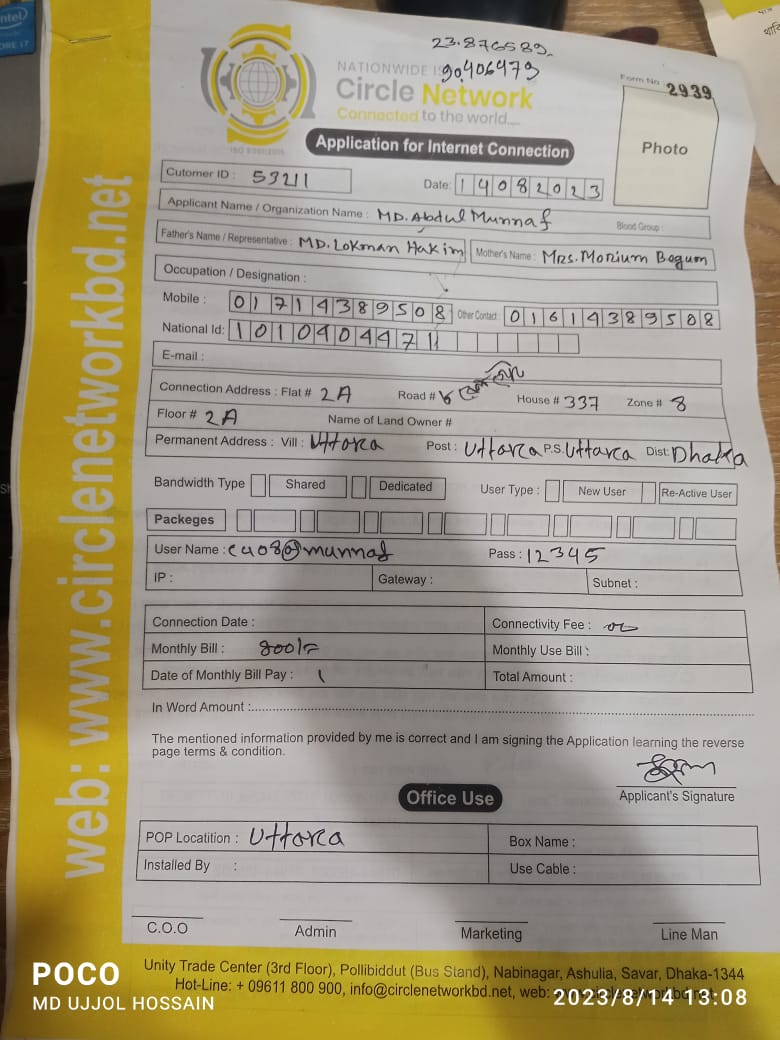 intel
CORE i7
23.876589
90.406479
NATIONWIDE
Circle Network
Connected to the world....
Form No 2939
Photo
Application for Internet Connection
Cutomer ID : 53211
Date: 14082023
Applicant Name / Organization Name : MD. Abdul Munnaf Blood Group :
Father's Name / Representative : MD. Lokman Hakim Mother's Name : Mrs. Morium Begum
Occupation / Designation :
Mobile : 01714389508 Other Contact: 01614389508
National Id: 1010940447
E-mail :
Connection Address : Flat # 2A Road # House # 337 Zone # 8
Floor # 2A Name of Land Owner #
Permanent Address : Vill : Uttora Post : Uttara P.S. Uttara Dist: Dhaka
Bandwidth Type Shared Dedicated User Type : New User Re-Active User
Packeges
User Name : Pass : 12345
IP : Gateway : Subnet :
Connection Date : Connectivity Fee :
Monthly Bill : 800/= Monthly Use Bill :
Date of Monthly Bill Pay : Total Amount :
In Word Amount :
The mentioned information provided by me is correct and I am signing the Application learning the reverse
page terms & condition.
Applicant's Signature
Office Use
POP Locatition : Uttora Box Name :
Installed By : Use Cable :
C.O.O Admin Marketing Line Man
Unity Trade Center (3rd Floor), Pollibiddut (Bus Stand), Nabinagar, Ashulia, Savar, Dhaka-1344
Hot-Line: + 09611 800 900, info@circlenetworkbd.net, web:
web: www.circlenetworkbd.net
POCO
MD UJJOL HOSSAIN
2023/8/14 13:08